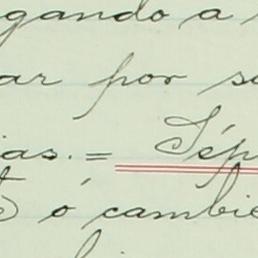 gando a
ar por s
as. = Sép
ó cambie